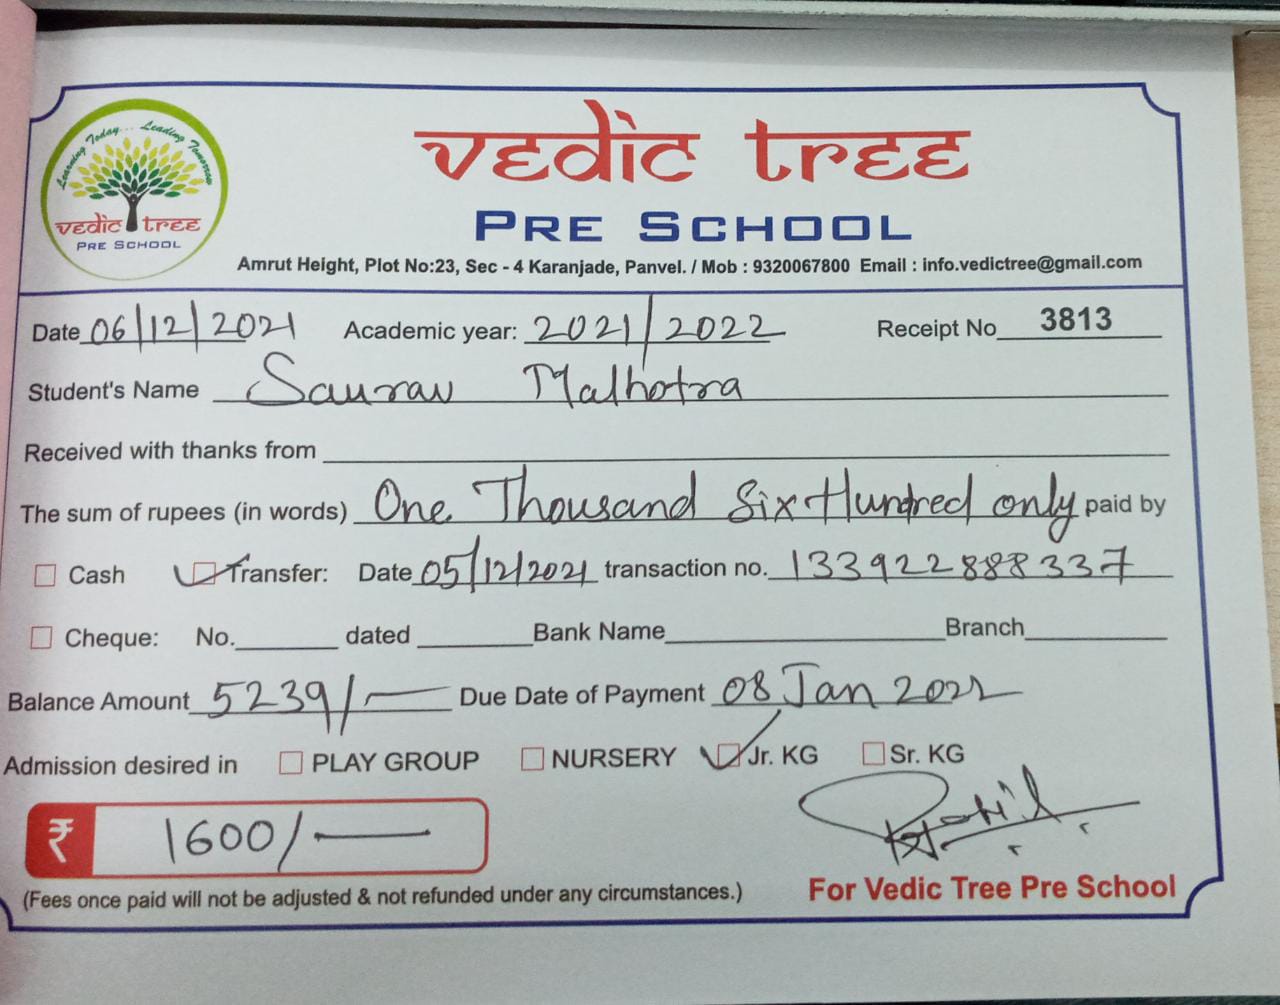 Learning Today... Leading Tomorrow
vedic tree
PRE SCHOOL
vedic tree
PRE SCHOOL
Amrut Height, Plot No:23, Sec - 4 Karanjade, Panvel. / Mob : 9320067800 Email : info.vedictree@gmail.com
Date 06/12/2021 Academic year: 2021/2022 Receipt No 3813
Student's Name Saurav Malhotra
Received with thanks from
The sum of rupees (in words) One Thousand Six Hundred only paid by
Cash Transfer: Date 05/12/2021 transaction no. 133922888337
Cheque: No. dated Bank Name Branch
Balance Amount 5239/- Due Date of Payment 08 Jan 2022
Admission desired in PLAY GROUP NURSERY Jr. KG Sr. KG
₹ 1600/-
(Fees once paid will not be adjusted & not refunded under any circumstances.) For Vedic Tree Pre School